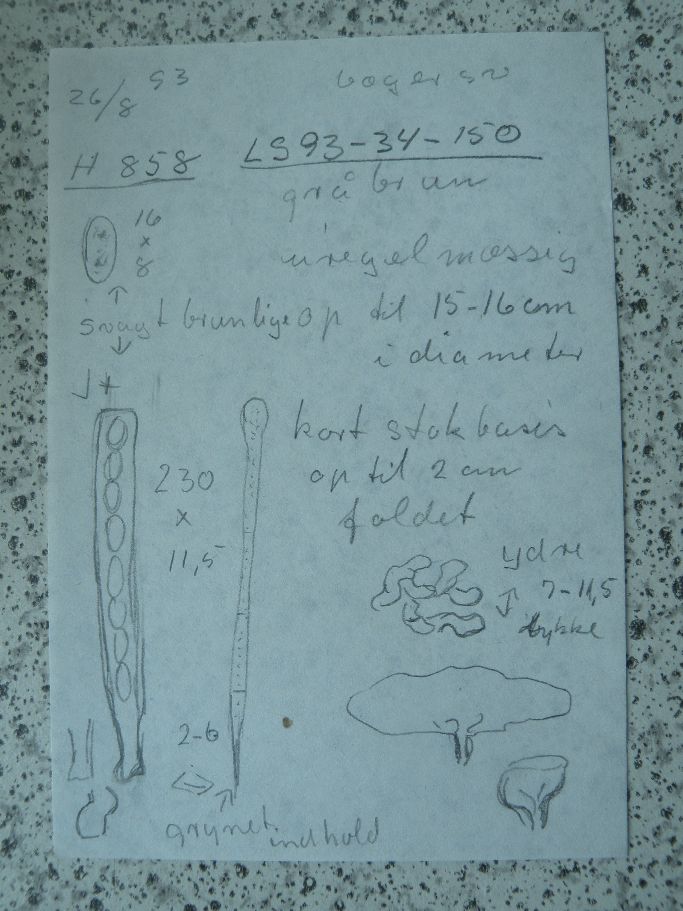 26/8 93
H 858
LS93-34-150
gråbrun
16
x
8
uregelmæssig
svagt brunlige
op til 15-16 cm
i diameter
J+
kort stok basis
op til 2 cm
foldet
230
x
11,5
ydre
7-11,5
tykke
2-6
grynet indhold